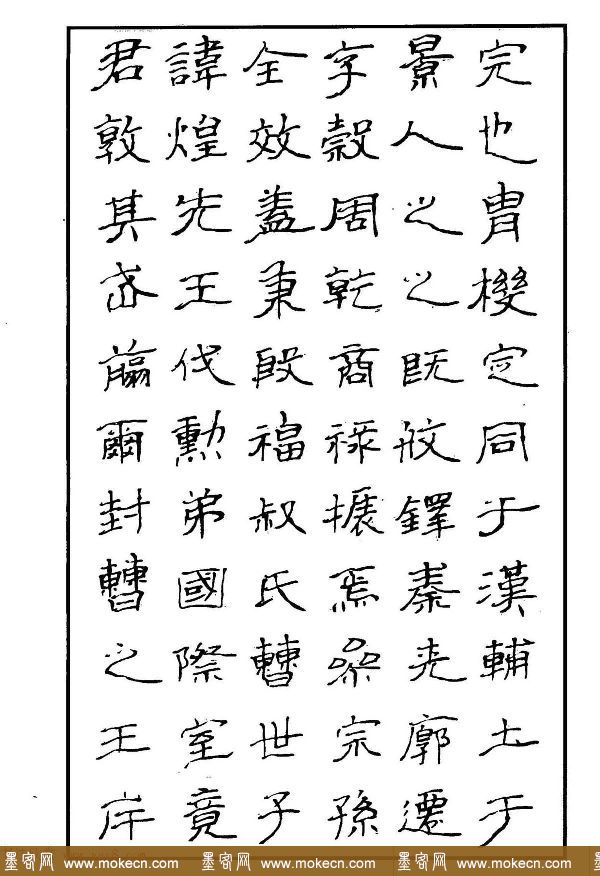 君諱全字景完
敦煌效穀人也
其先蓋周之胄
武王秉乾之機
翦伐殷商既定
爾勳福祿攸同
封弟叔振鐸于
曹國氏焉秦漢
之際曹參夾輔
王室世宗廓土
斥竟子孫遷于
墨客网 www.mokecn.com 墨客网 www.mokecn.com 墨客网 www.mokecn.com